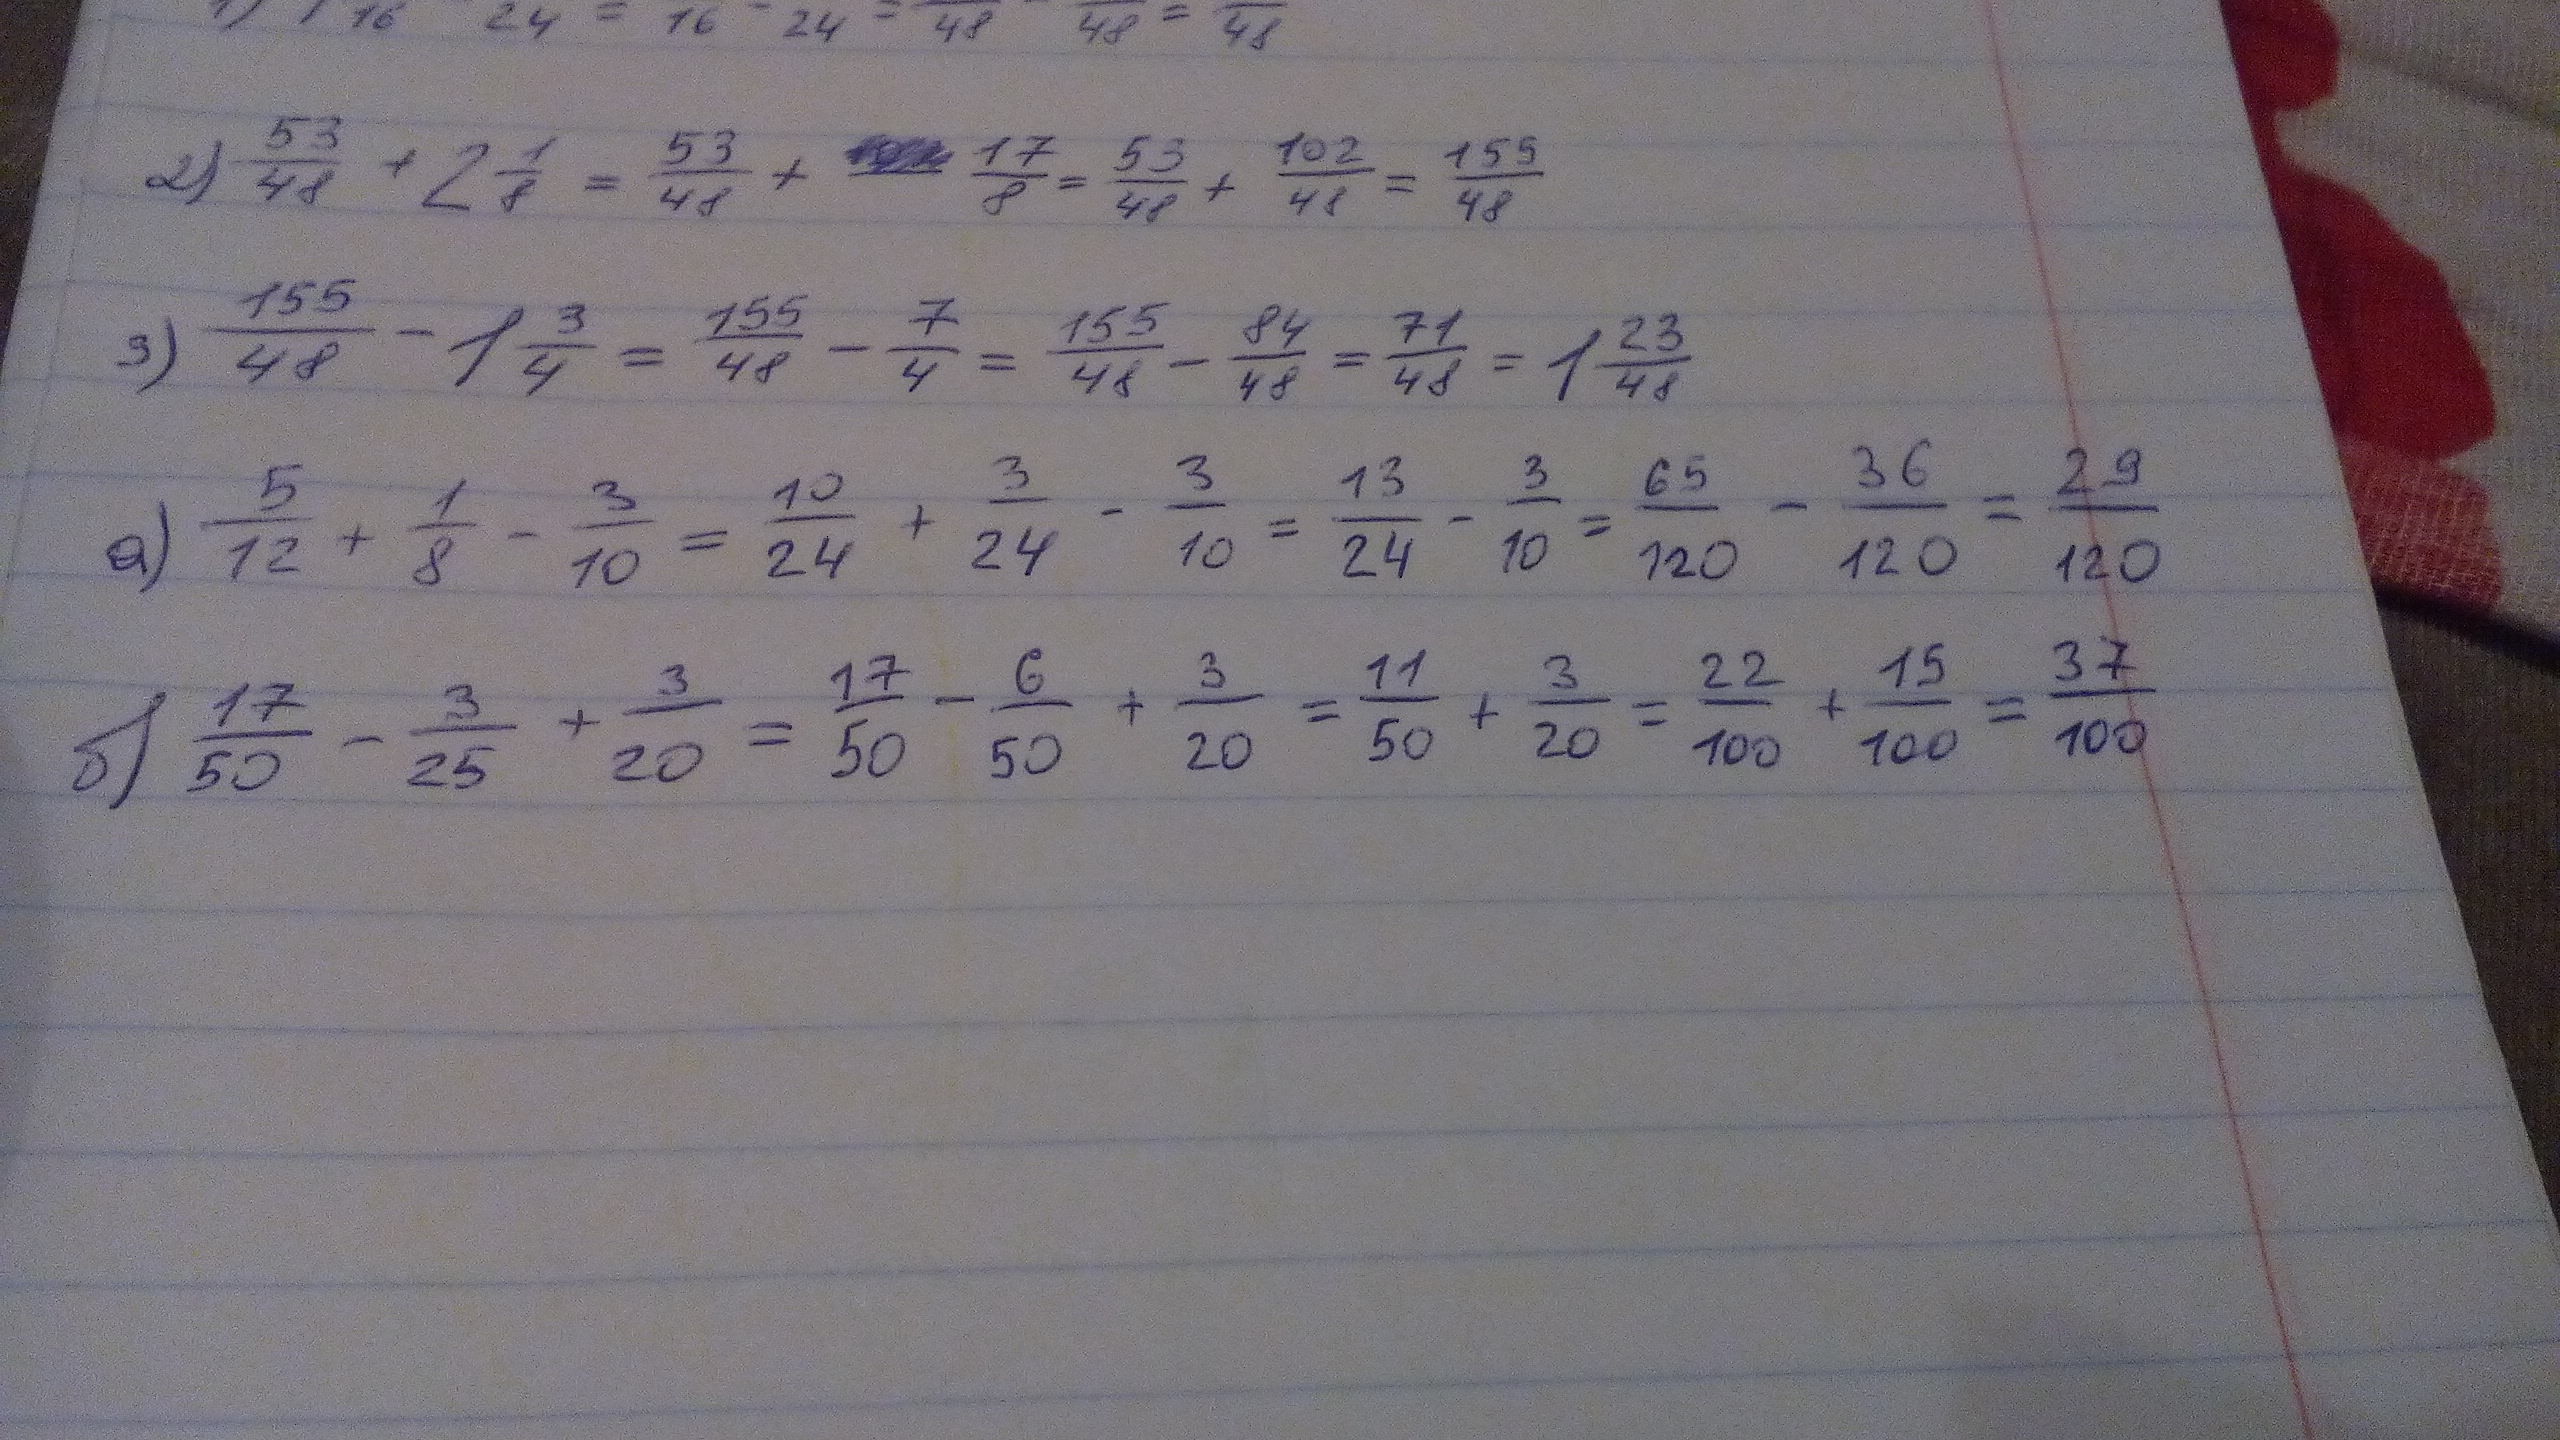 1) 1 /16 - /24 = /16 - /24 = /48 - /48 = /48
2) 53/48 + 2 1/8 = 53/48 + 17/8 = 53/48 + 102/48 = 155/48
3) 155/48 - 1 3/4 = 155/48 - 7/4 = 155/48 - 84/48 = 71/48 = 1 23/48
а) 5/12 + 1/8 - 3/10 = 10/24 + 3/24 - 3/10 = 13/24 - 3/10 = 65/120 - 36/120 = 29/120
б) 17/50 - 3/25 + 3/20 = 17/50 - 6/50 + 3/20 = 11/50 + 3/20 = 22/100 + 15/100 = 37/100